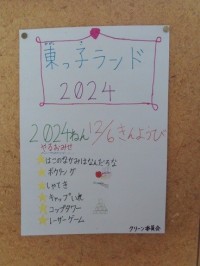 菓っ子ランド
2024
2024ねん12/6きんようび
やるおみせ
はこのなかみはなんだろな
ボウリング
しゃてき
キャップい
コップタワー
レーザーゲーム
グリーン委員会